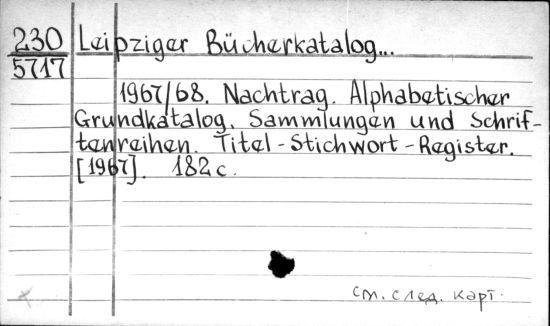 230 Leipziger Bücherkatalog...
5717
1967/68. Nachtrag. Alphabetischer
Grundkatalog. Sammlungen und Schrif-
tenreihen. Titel-Stichwort-Register.
[1967]. 182 с.
см. след. карт.